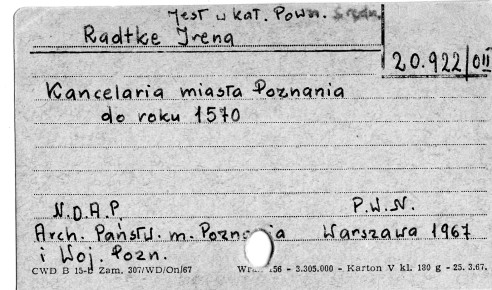 Jest w kat. Pown. Środ.
Radtke Irena
20.922/OII
Kancelaria miasta Poznania
do roku 1570
N.D.A.P. P.W.N.
Arch. Państw. m. Pozn ia Warszawa 1967
i Woj. Pozn.
CWD B 15-b Zam. 307/WD/On/67 56 - 3.305.000 - Karton V kl. 180 g - 25. 3.67.